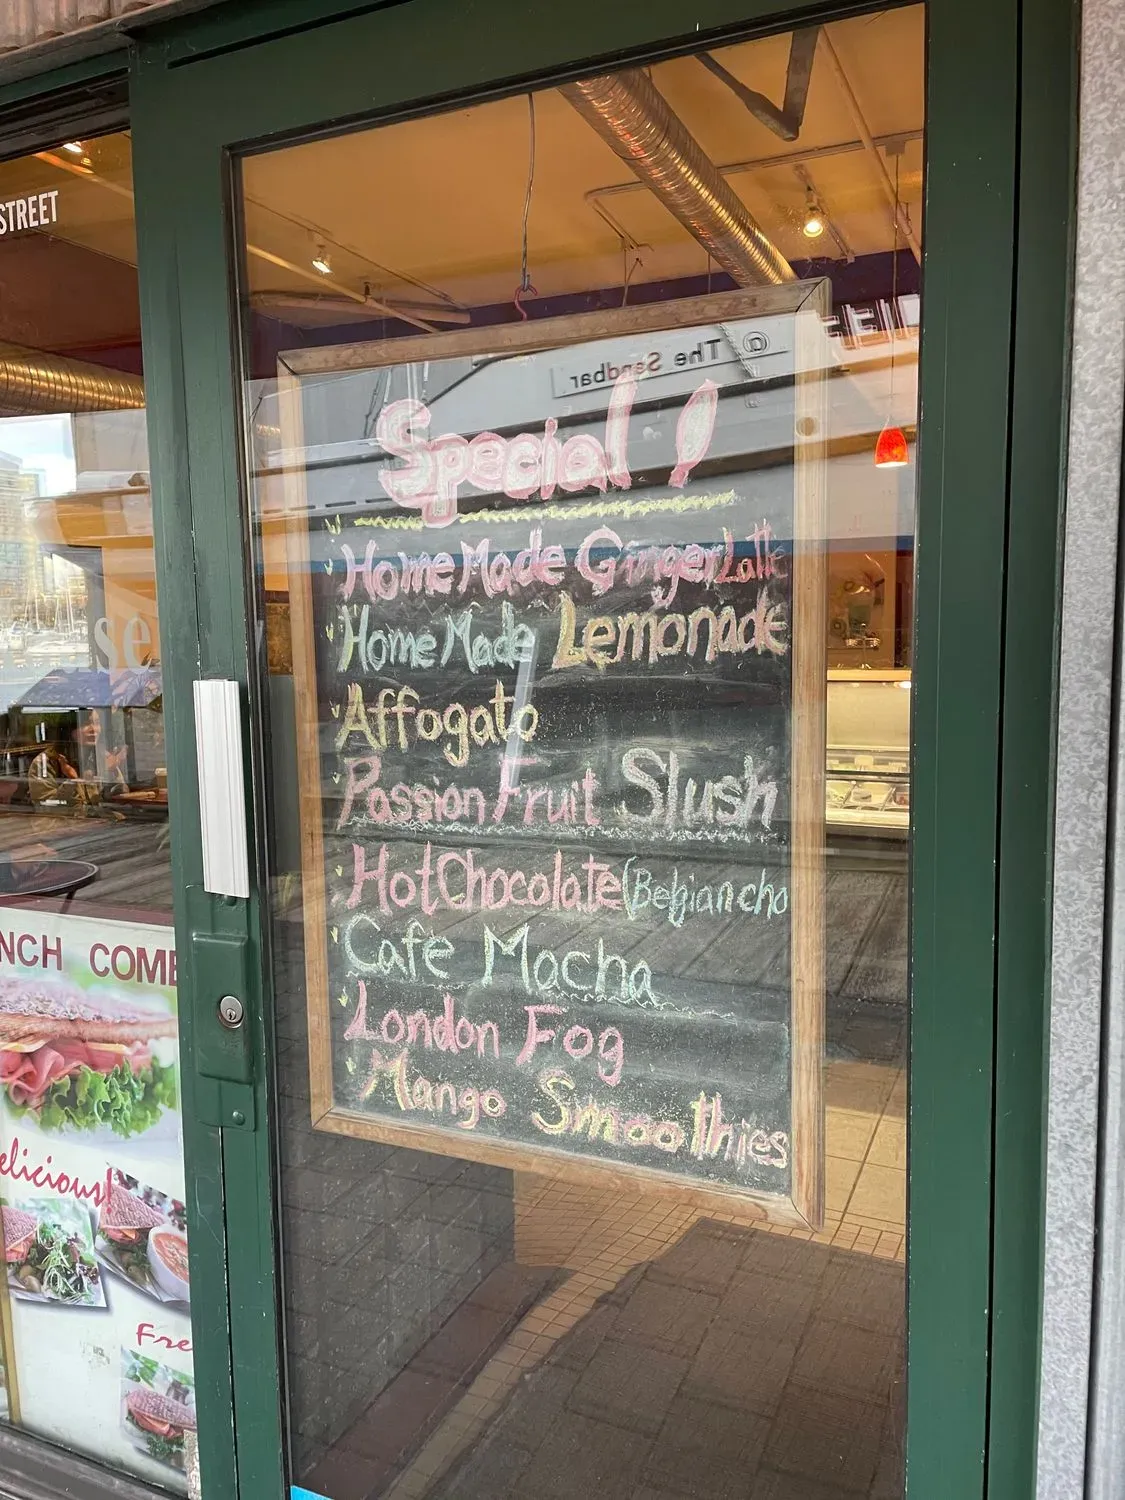 STREET
@ The Sandbar
Special!
HomeMade Ginger Latte
HomeMade Lemonade
Affogato
Passion Fruit Slush
Hot Chocolate (Belgian cho
Cafe Mocha
London Fog
Mango Smoothies
NCH COMB
elicious!
Fre